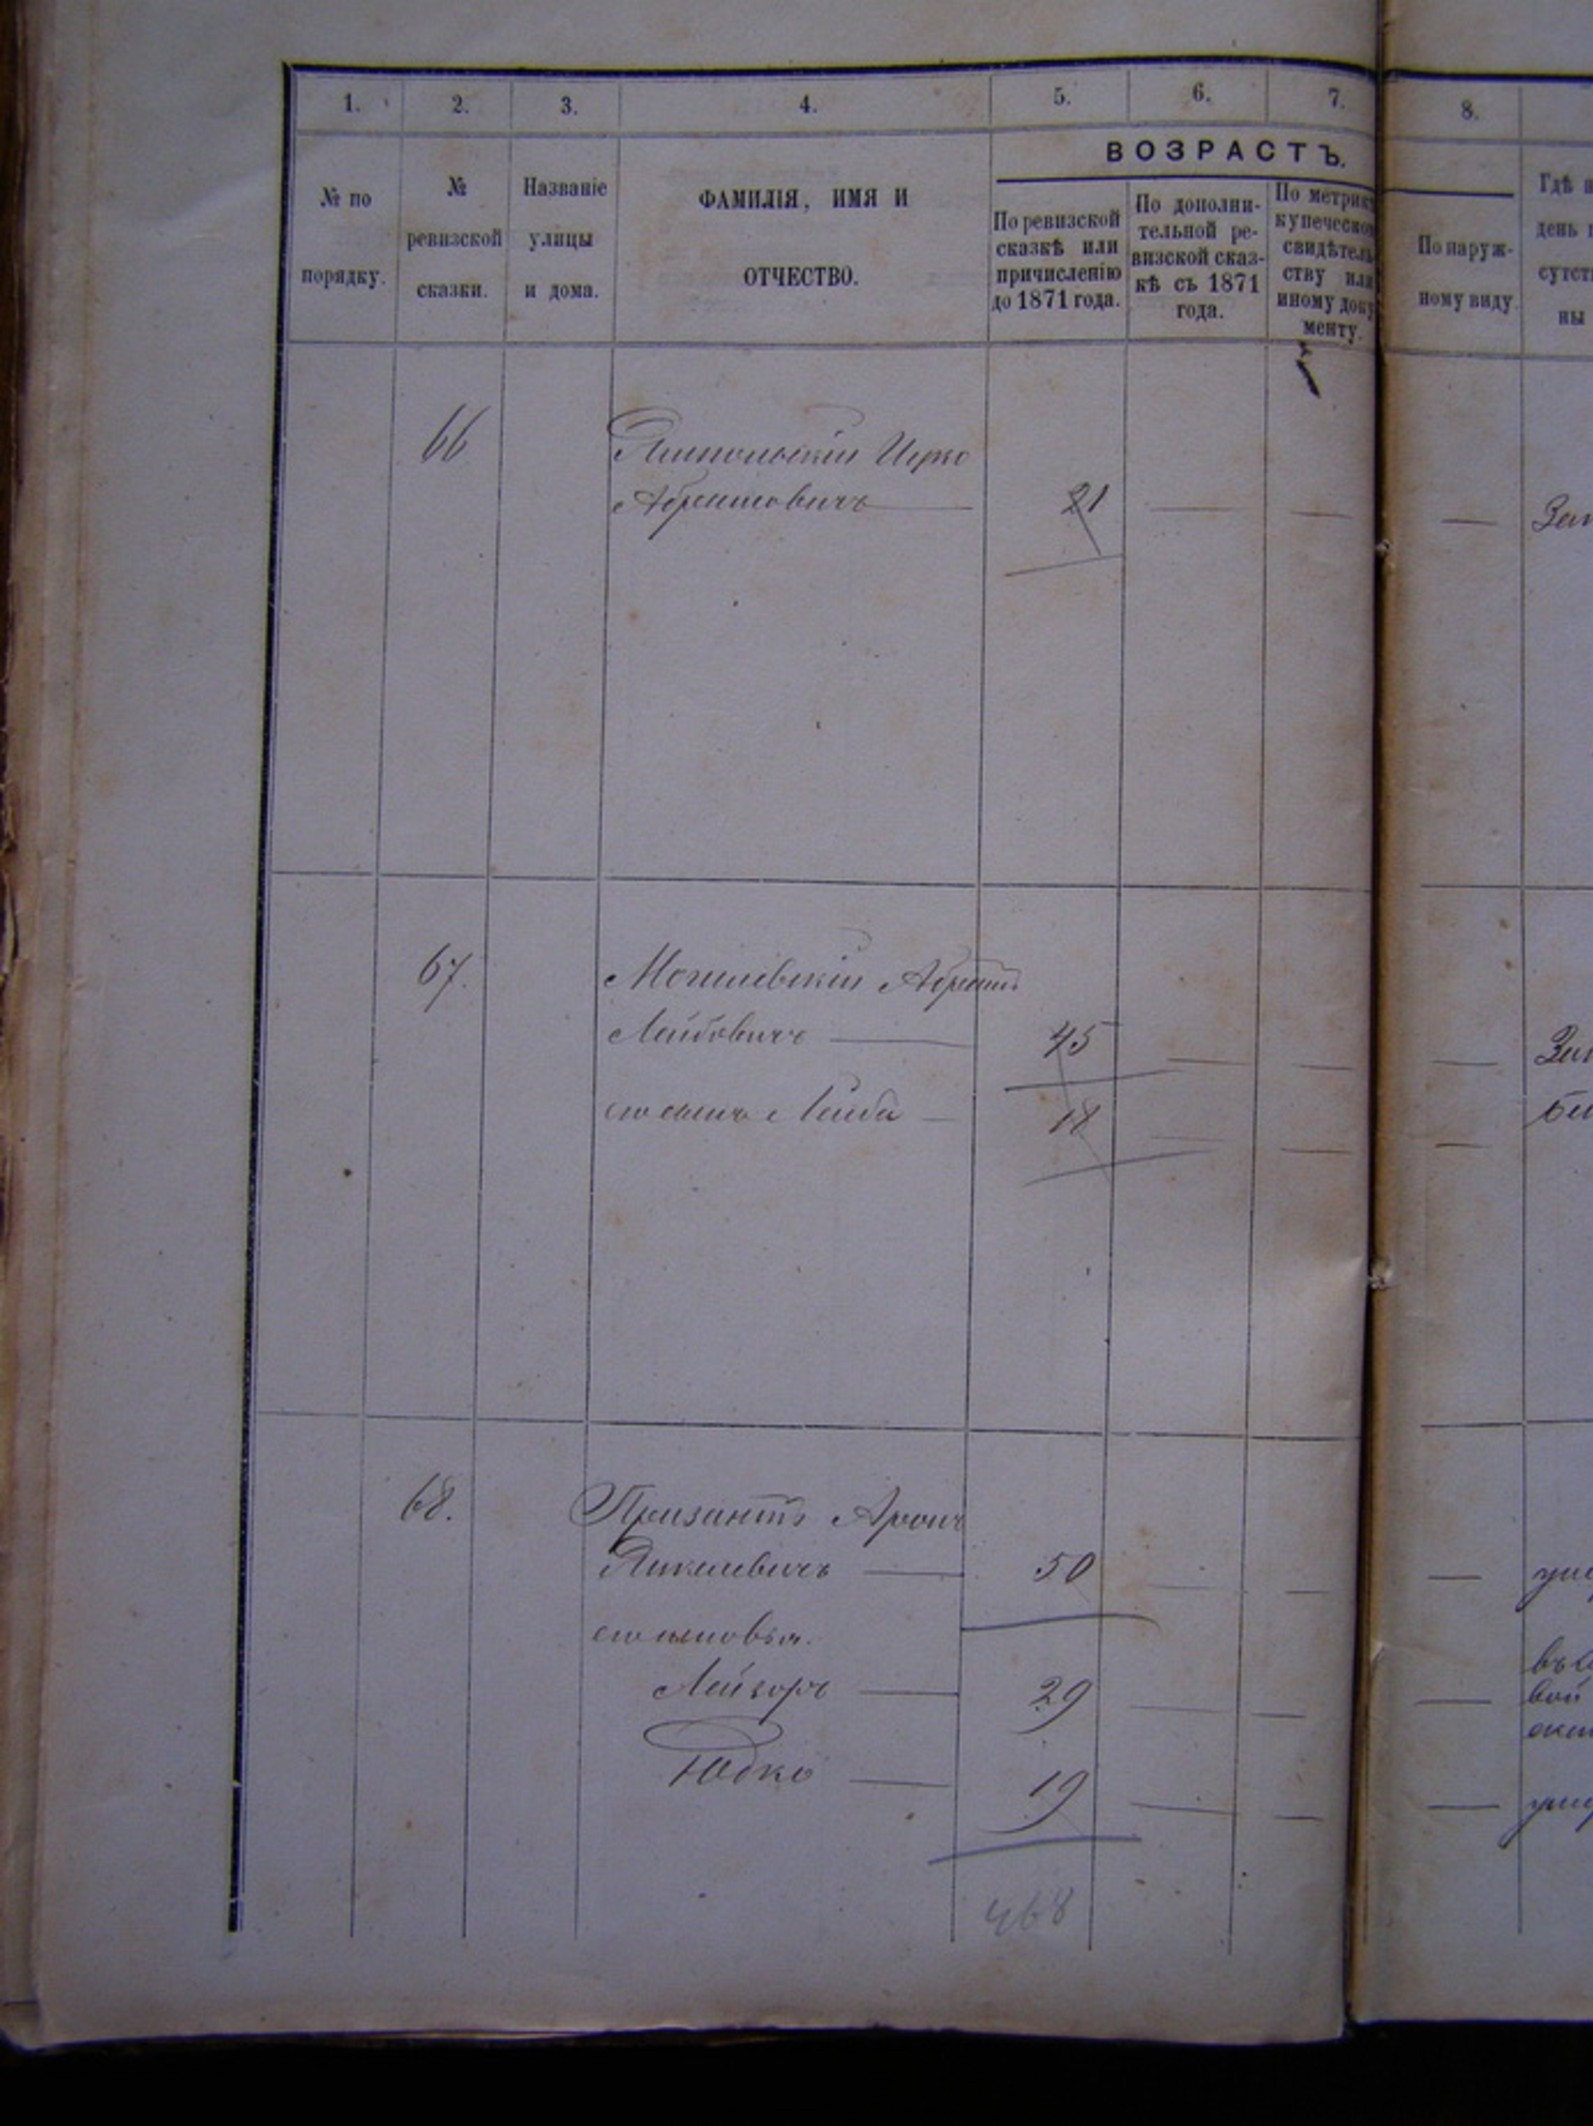 1. 2. 3. 4. 5. 6. 7. 8.
ВОЗРАСТЪ.
№ по
порядку.
№
ревизской
сказки.
Названіе
улицы
и дома.
ФАМИЛІЯ, ИМЯ И
ОТЧЕСТВО.
По ревизской
сказкѣ или
причисленію
до 1871 года.
По дополни-
тельной ре-
визской сказ-
кѣ съ 1871
года.
По метрик
купеческом
свидѣтель
ству или
иному доку
менту.
По наруж-
ному виду.
Гдѣ
день
сутст
ны
66 Ямпольскій Ицко
Абрамовичъ — 21 — — — Зап
67. Могилевскій Абрамъ
Лейбовичъ — 45 — — —
его сынъ Лейба — 18 — — —
68. Призантъ Аронъ
Янкелевичъ — 50 — — — уме
его сыновья.
Лейзоръ — 29 — — —
Юдко — 19 — — —
468